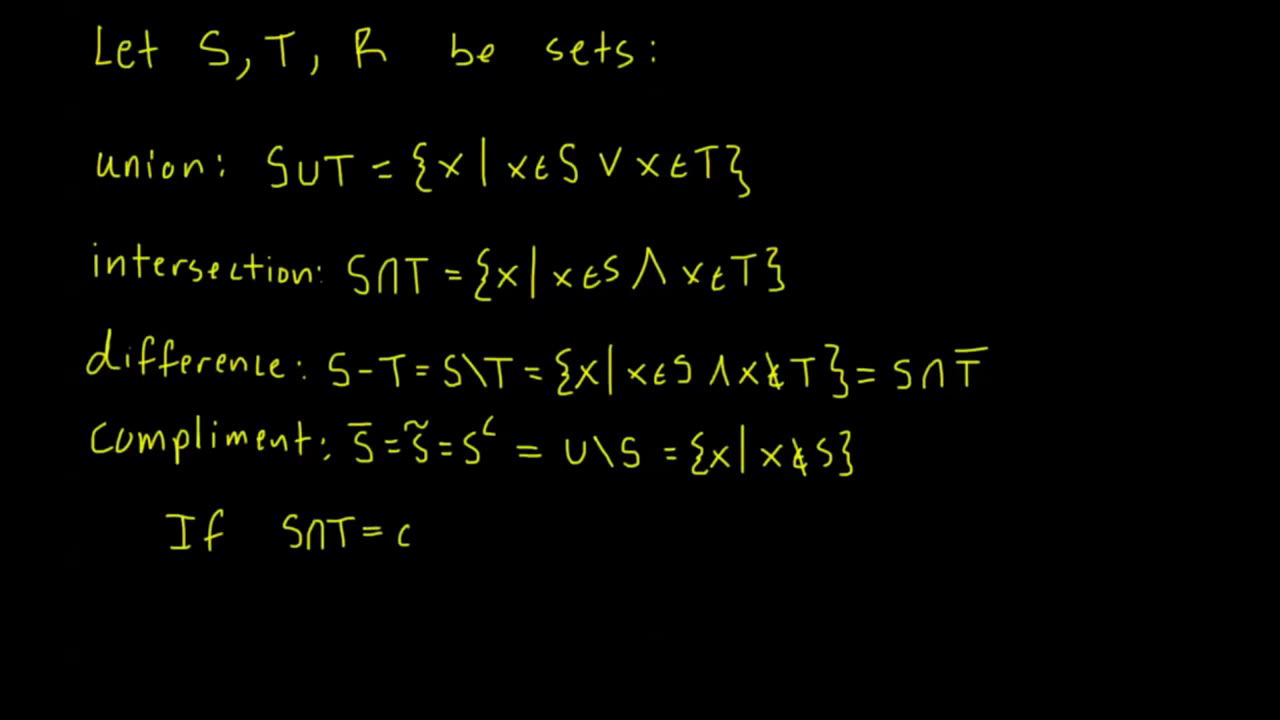 Let S, T, R be sets:
union: S∪T = {x | x∈S ∨ x∈T}
intersection: S∩T = {x | x∈S ∧ x∈T}
difference: S-T = S\T = {x | x∈S ∧ x∉T} = S∩T̅
Compliment: S̅ = S̃ = Sᶜ = U\S = {x | x∉S}
If S∩T = c